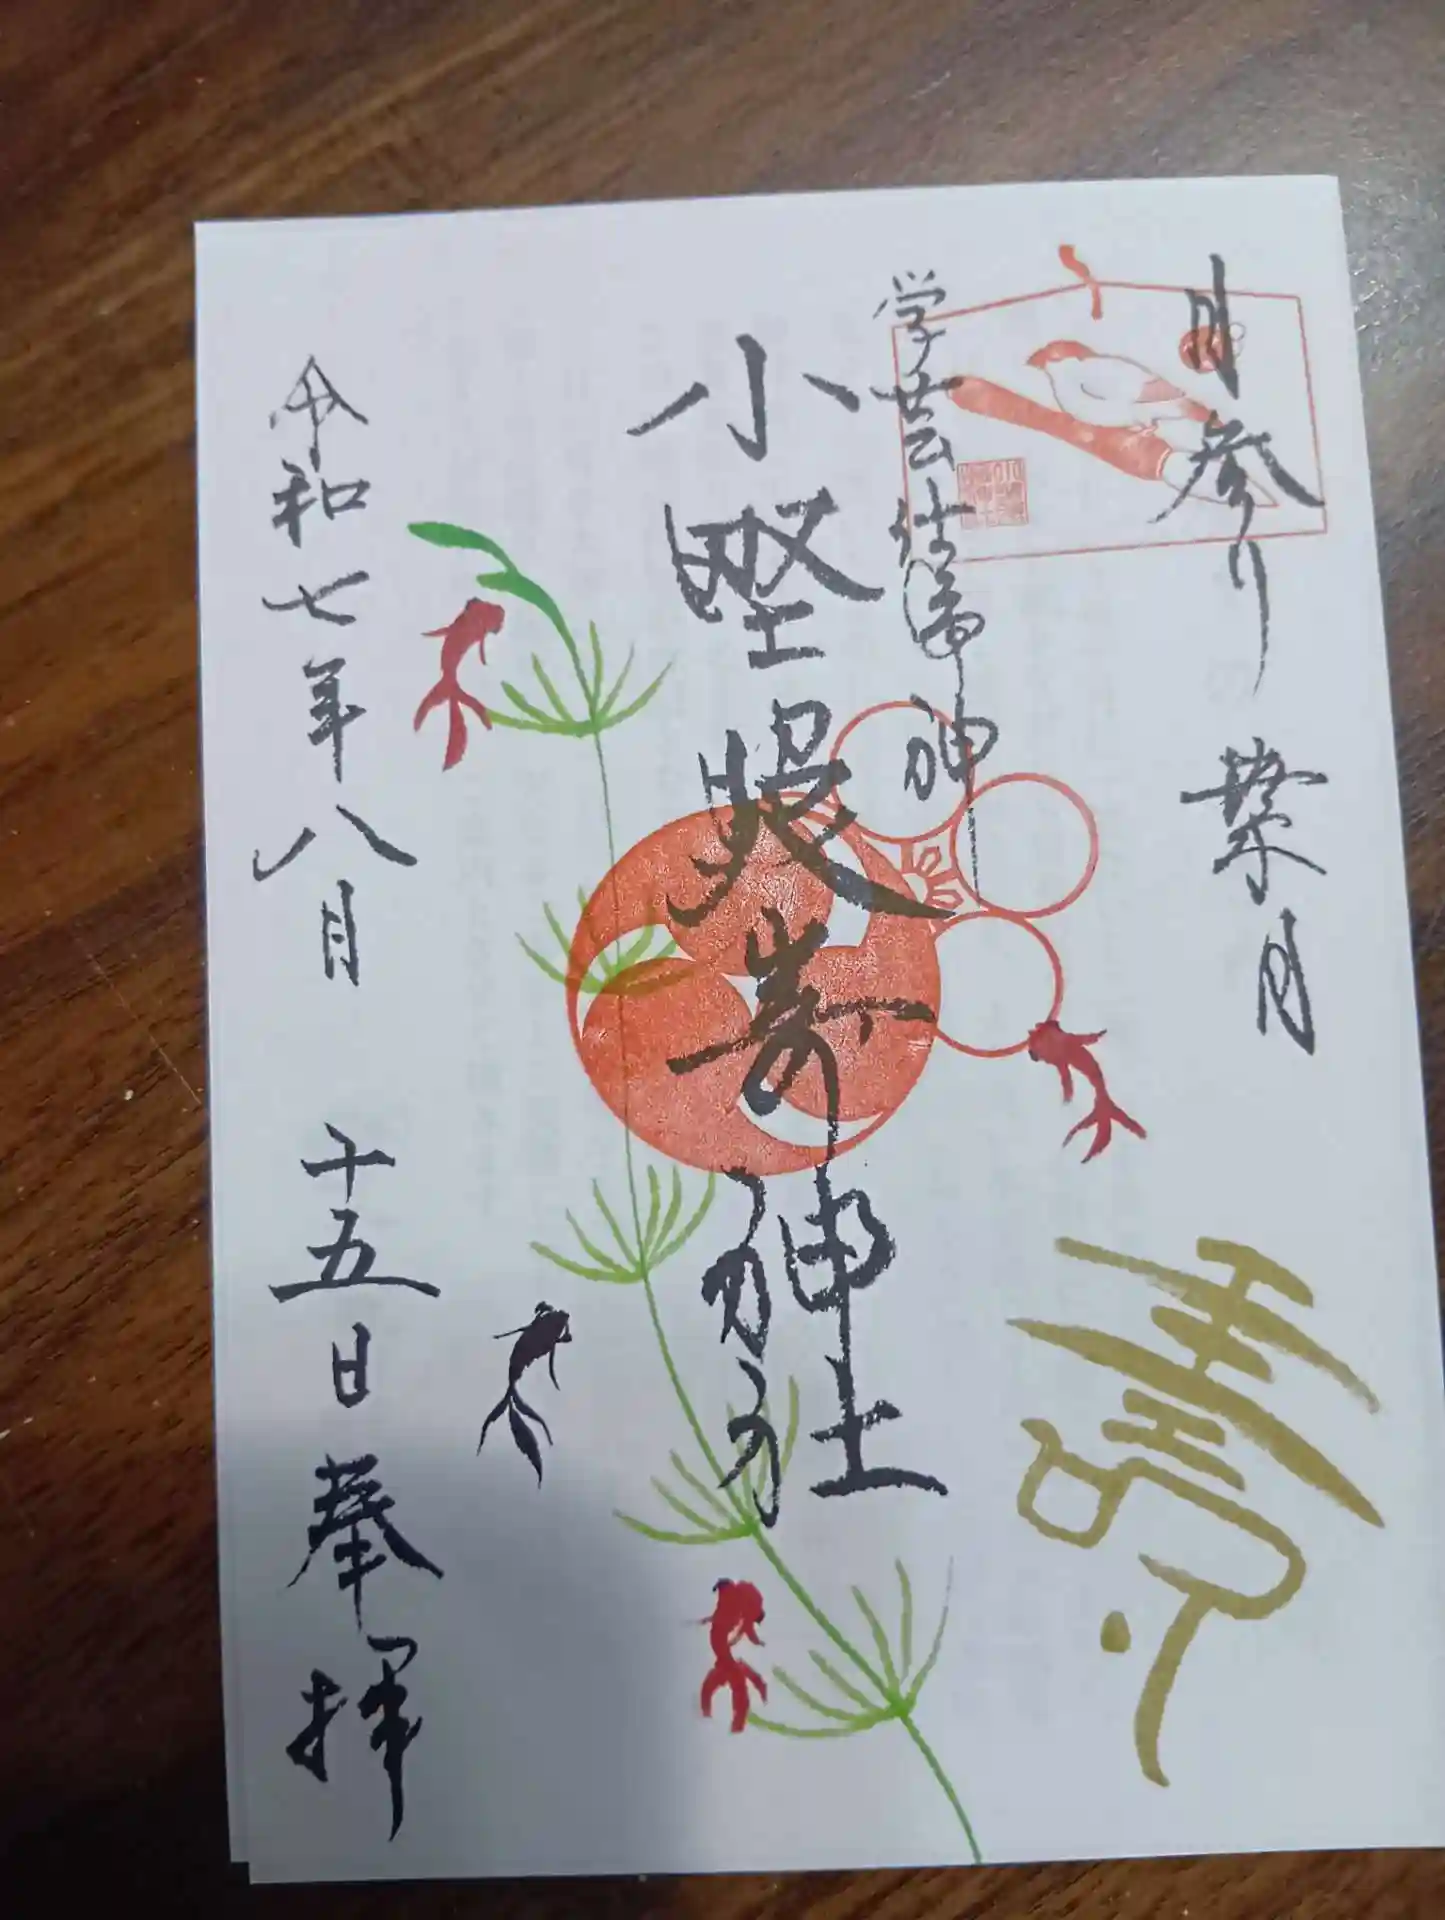 月参り 葉月
学芸仕事神
小野照崎神社
令和七年八月 十五日 奉拝